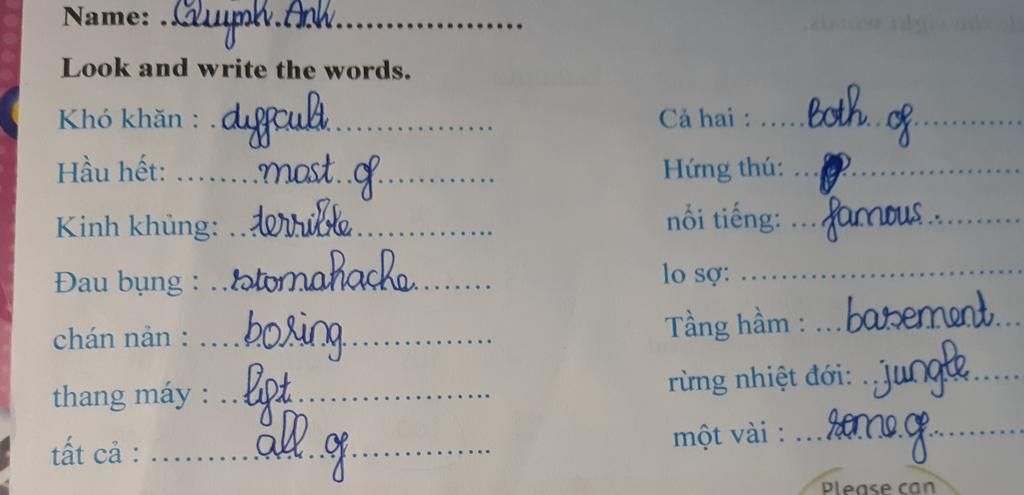 Name: ..Quỳnh.Anh....................
Look and write the words.
Khó khăn : .diffcult..................
Hầu hết: ........most..of.............
Kinh khủng: ..terrible...............
Đau bụng : ..stomahache........
chán nản : ....boring.................
thang máy : ..lift........................
tất cả : .............all..of.................
Cả hai : .....Both..of.............
Hứng thú: .......................
nổi tiếng: ...famous............
lo sợ: ...............................
Tầng hầm : ...basement...
rừng nhiệt đới: ..jungle......
một vài : ...some.of............
Please can